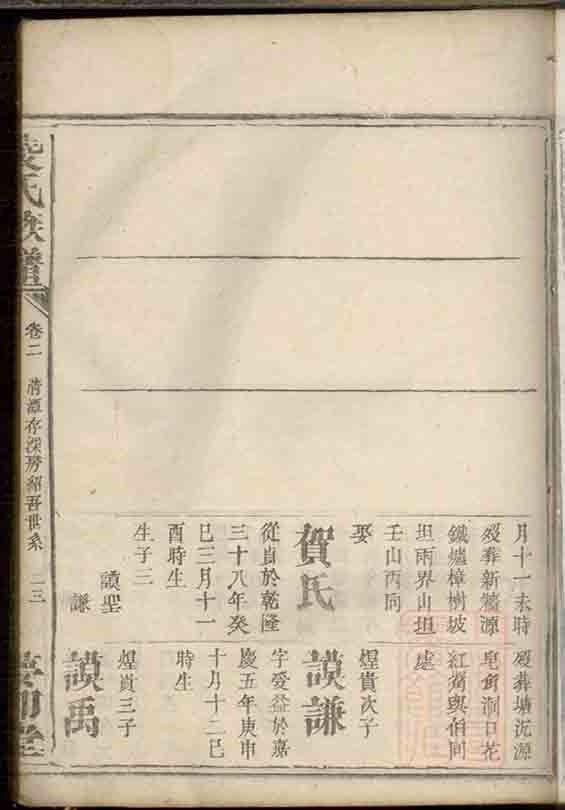 月十一未時
歿葬新牆源
鐵爐樟樹坡
坦兩界山坦
壬山丙向
娶
賀氏
從自於乾隆
三十八年癸
巳三月十一
酉時生
生子三
謨聖
謙
歿葬塘沉源
皂角洞口花
紅嘴與伯同
處
煋貴次子
謨謙
字愛益於嘉
慶五年庚申
十月十二巳
時生
煋貴三子
謨禹
氏族譜
卷二
存深房紹吾世系
二三